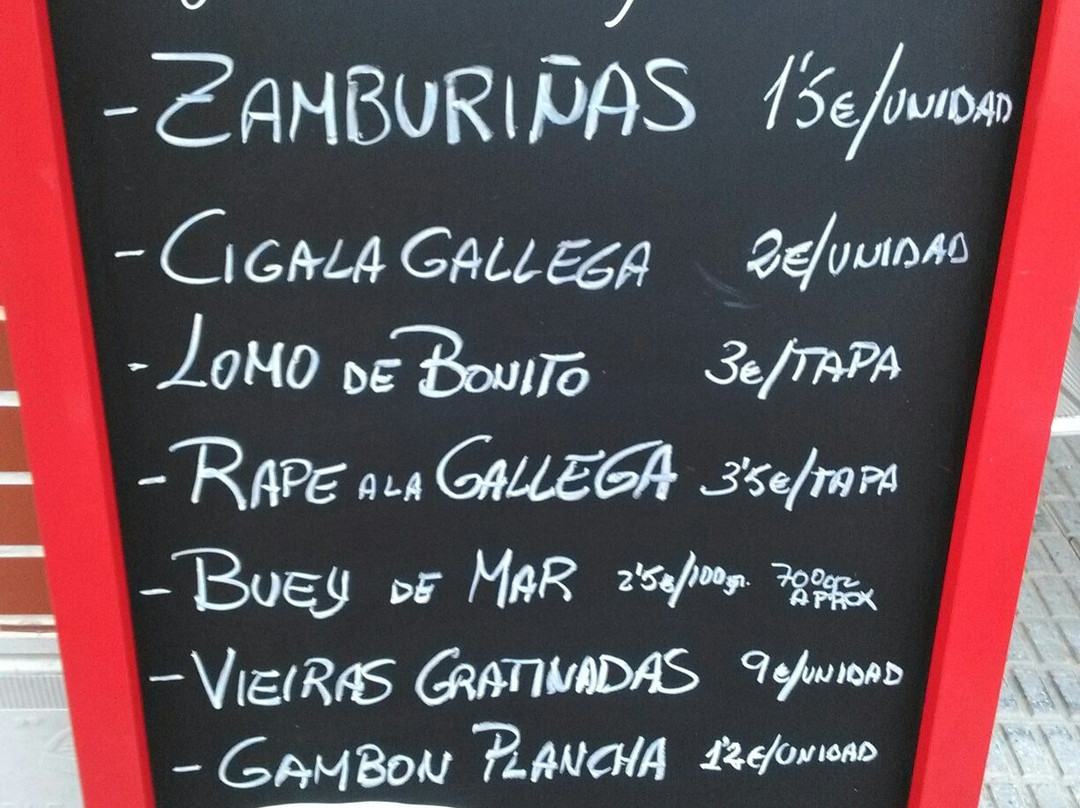 - ZAMBURIÑAS 1'5€/UNIDAD
- CIGALA GALLEGA 2€/UNIDAD
- LOMO DE BONITO 3€/TAPA
- RAPE A LA GALLEGA 3'5€/TAPA
- BUEY DE MAR 2'5€/100gr. 700gr APROX
- VIEIRAS GRATINADAS 9€/UNIDAD
- GAMBON PLANCHA 1'2€/UNIDAD